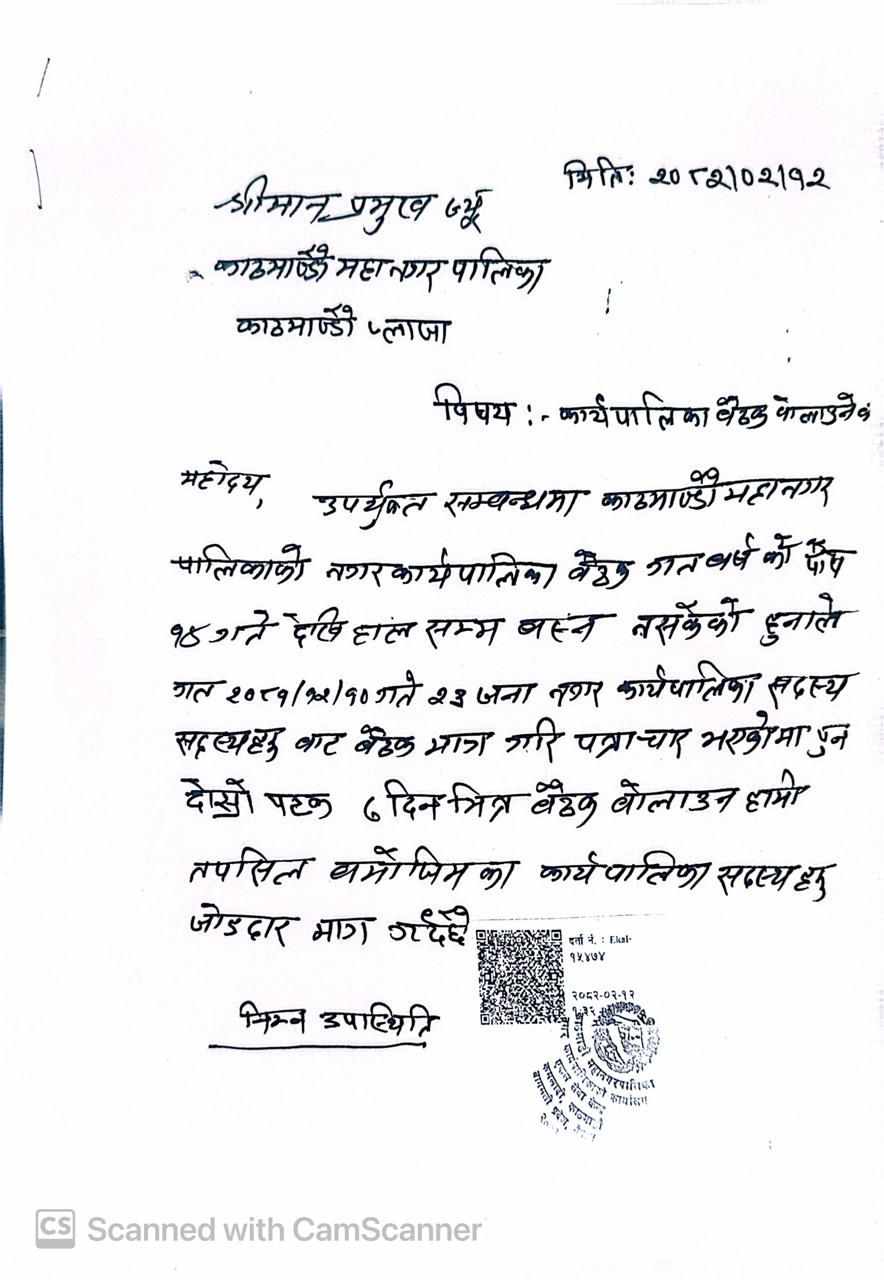 मिति: २०८२/०२/१२
श्रीमान् प्रमुख ज्यू
काठमाण्डौ महानगरपालिका
काठमाण्डौ प्लाजा
विषय :- कार्यपालिका बैठक बोलाउने
महोदय,
उपर्युक्त सम्बन्धमा काठमाण्डौ महानगर
पालिकाको नगर कार्यपालिका बैठक गत बर्ष को पौष
गते देखि हाल सम्म बस्न नसकेको हुनाले
गत २०८१/१२/१० गते २३ जना नगर कार्यपालिका सदस्य
सदस्यहरु बाट बैठक माग गरि पत्राचार भएकोमा पुन
दोस्रो पटक ७ दिन भित्र बैठक बोलाउन हामी
तपसिल बमोजिम का कार्यपालिका सदस्यहरु
जोडदार माग गर्दछौ
दर्ता नं. : Ekal-
१५४७४
२०८२-०२-१२
निम्न उपास्थिति
महानगरपालिका
CS Scanned with CamScanner